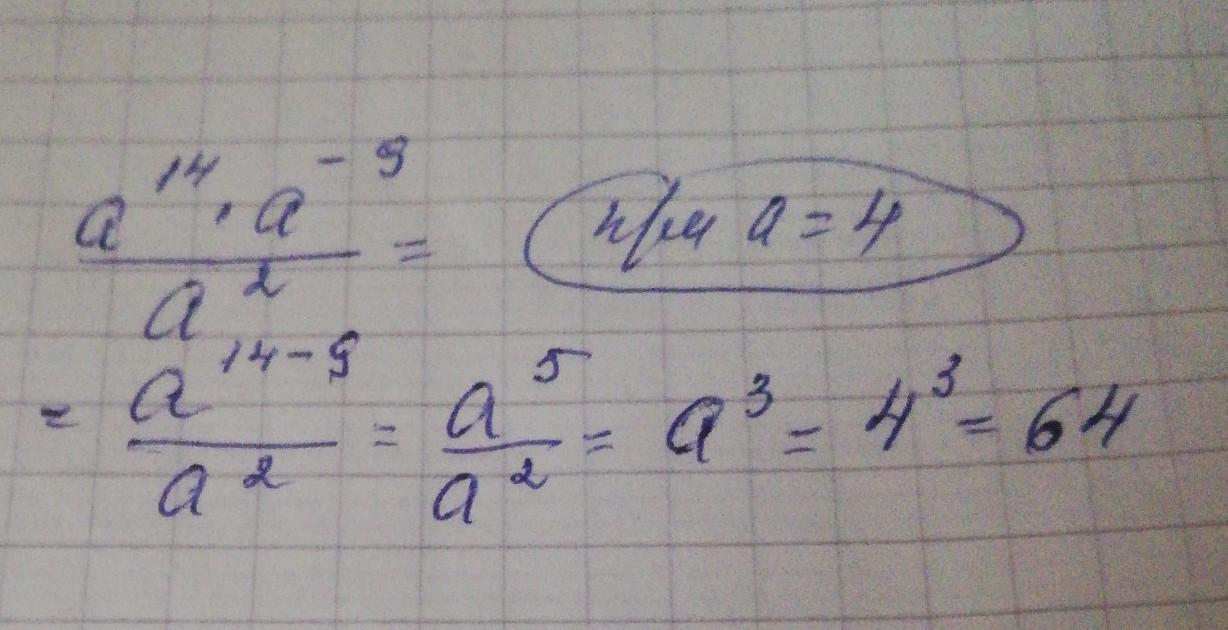 a¹⁴ · a⁻⁹ / a² = при a = 4
= a¹⁴⁻⁹ / a² = a⁵ / a² = a³ = 4³ = 64